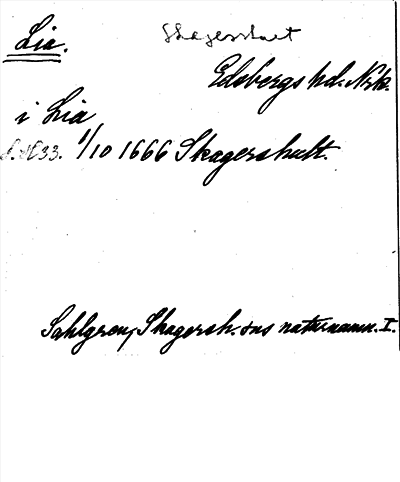 Lia.
Skagershult
Edsbergs hd. Nrk.
i Lia
1/10 1666 Skagershult.
Sahlgren, Skagersh. sns naturnamn. I.